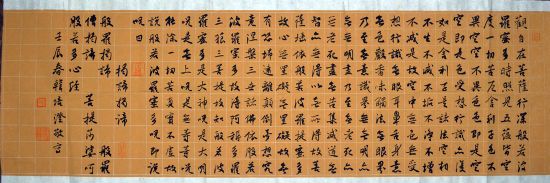 觀自在菩薩行深般若波
羅蜜多時照見五蘊皆空
度一切苦厄舍利子色不
異空空不異色色即是空
空即是色受想行識亦復
如是舍利子是諸法空相
不生不滅不垢不淨不增
不減是故空中無色無受
想行識無眼耳鼻舌身意
無色聲香味觸法無眼界
乃至無意識界無無明亦
無無明盡乃至無老死亦
無老死盡無苦集滅道無
智亦無得以無所得故菩提
薩埵依般若波羅蜜多
故心無罣礙無罣礙故
無有恐怖遠離顛倒夢想
究竟涅槃三世諸佛依般若
波羅蜜多故得阿耨多羅
三藐三菩提故知般若波
羅蜜多是大神呪是大明
呪是無上呪是無等等呪
能除一切苦真實不虛故
說般若波羅蜜多呪即說
呪曰
揭諦揭諦 般羅
揭諦 般羅
僧揭諦 菩提莎婆訶
般若多心經
壬辰春 敬書